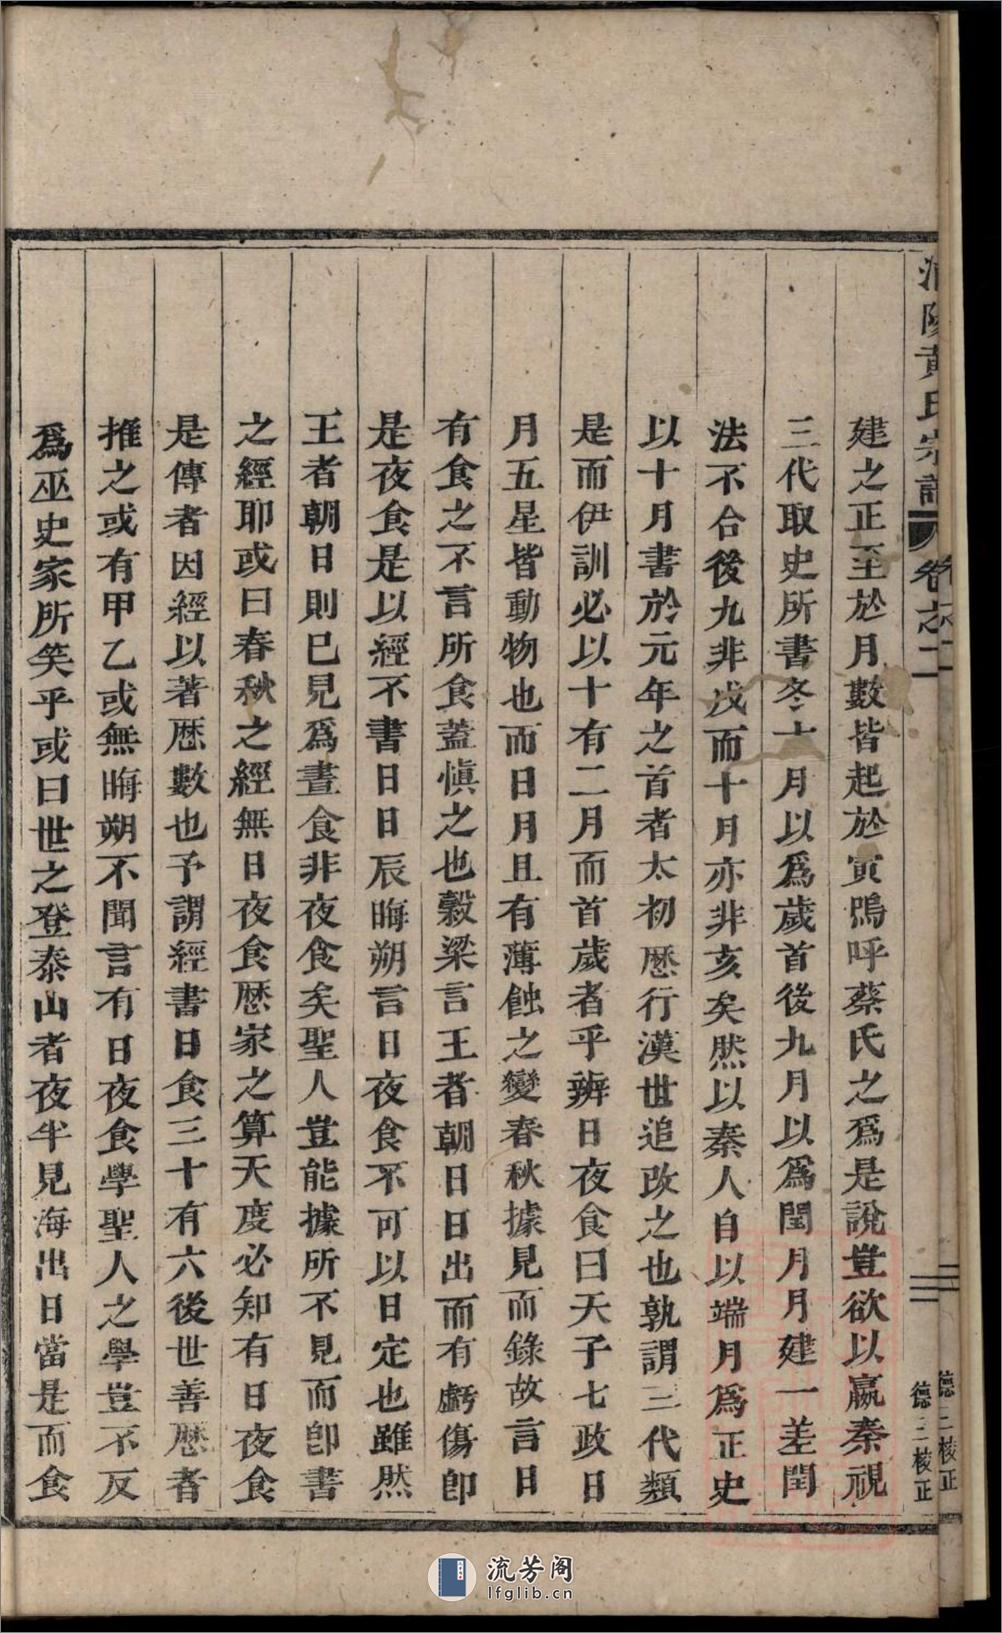 黃氏宗譜 卷之二
德三校正
建之正至於月數皆起於寅嗚呼蔡氏之爲是說豈欲以嬴秦視
三代取史所書冬十月以爲歲首後九月以爲閏月月建一差閏
法不合後九非戌而十月亦非亥矣然以秦人自以端月爲正史
以十月書於元年之首者太初厯行漢世追改之也孰謂三代類
是而伊訓必以十有二月而首歲者乎辨日夜食曰天子七政日
月五星皆動物也而日月且有薄蝕之變春秋據見而錄故言日
有食之不言所食蓋愼之也榖梁言王者朝日日出而有虧傷卽
是夜食是以經不書日日辰晦朔言日夜食不可以日定也雖然
王者朝日則已見爲晝食非夜食矣聖人豈能據所不見而卽書
之經耶或曰春秋之經無日夜食厯家之算天度必知有日夜食
是傳者因經以著厯數也予謂經書日食三十有六後世善厯者
推之或有甲乙或無晦朔不聞言有日夜食學聖人之學豈不反
爲巫史家所笑乎或曰世之登泰山者夜半見海出日當是而食
流芳阁
lfglib.cn